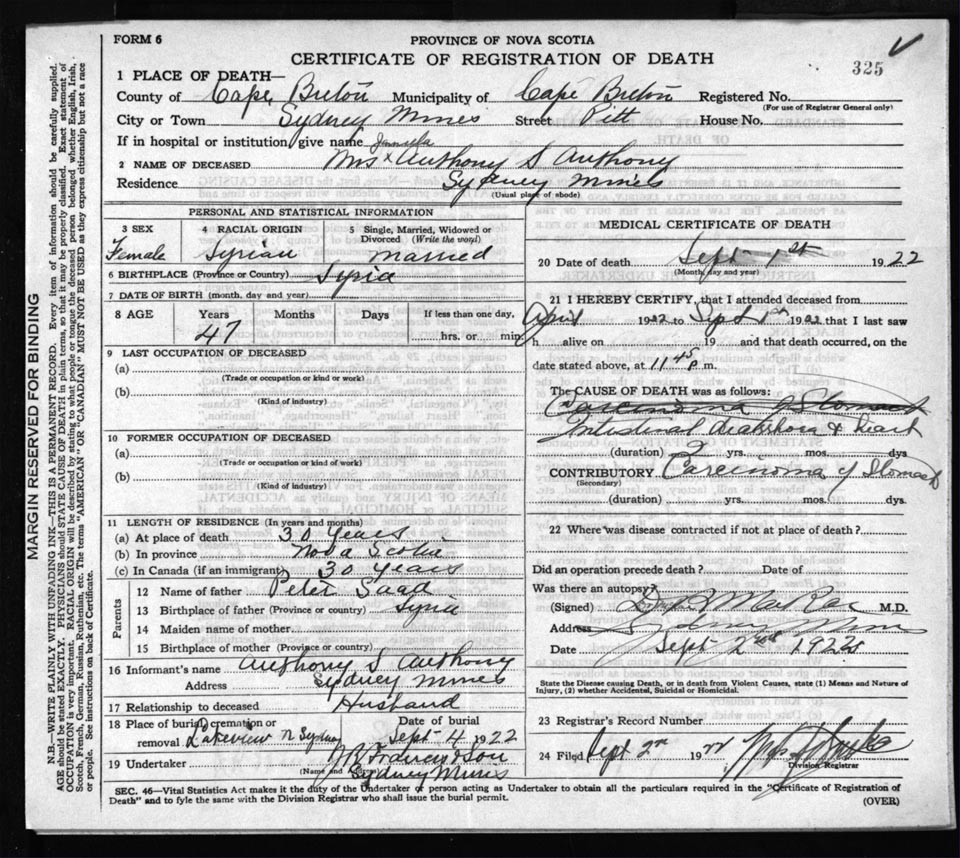 FORM 6
PROVINCE OF NOVA SCOTIA
CERTIFICATE OF REGISTRATION OF DEATH
325
1 PLACE OF DEATH—
County of Cape Breton Municipality of Cape Breton Registered No.
(For use of Registrar General only)
City or Town Sydney Mines Street Pitt House No.
If in hospital or institution, give name
2 NAME OF DECEASED Mrs Anthony S Anthony
Residence Sydney Mines
(Usual place of abode)
PERSONAL AND STATISTICAL INFORMATION
3 SEX
Female
4 RACIAL ORIGIN
Syrian
5 Single, Married, Widowed or Divorced (Write the word)
Married
6 BIRTHPLACE (Province or Country) Syria
7 DATE OF BIRTH (month, day and year)
8 AGE Years Months Days If less than one day,
47 hrs. or min.
9 LAST OCCUPATION OF DECEASED
(a)
(Trade or occupation or kind or work)
(b)
(Kind of industry)
10 FORMER OCCUPATION OF DECEASED
(a)
(Trade or occupation or kind of work)
(b)
(Kind of industry)
11 LENGTH OF RESIDENCE (In years and months)
(a) At place of death 30 years
(b) In province Nova Scotia
(c) In Canada (if an immigrant) 30 years
Parents
12 Name of father Peter Saad
13 Birthplace of father (Province or country) Syria
14 Maiden name of mother
15 Birthplace of mother (Province or country)
16 Informant's name Anthony S Anthony
Address Sydney Mines
17 Relationship to deceased Husband
18 Place of burial, cremation or removal Lakeview N Sydney
Date of burial Sept 4 1922
19 Undertaker
(Name and Address) Sydney Mines
MEDICAL CERTIFICATE OF DEATH
20 Date of death Sept 1st 1922
(Month, day and year)
21 I HEREBY CERTIFY, that I attended deceased from
April 1922 to Sept 1st 1922 that I last saw
h alive on 19 and that death occurred, on the
date stated above, at 11 45 p.m.
The CAUSE OF DEATH was as follows:
Carcinoma of Stomach
Intestinal & Heart
(duration) 2 yrs. mos. dys
CONTRIBUTORY Carcinoma of Stomach
(Secondary)
(duration) yrs. mos. dys.
22 Where was disease contracted if not at place of death?
Did an operation precede death? Date of
Was there an autopsy?
(Signed) MacRae M.D.
Address Sydney Mines
Date Sept 2nd 1922
State the Disease causing Death, or in death from Violent Causes, state (1) Means and Nature of Injury, (2) whether Accidental, Suicidal or Homicidal.
23 Registrar's Record Number
24 Filed Sept 2nd 1922
Division Registrar
SEC. 46—Vital Statistics Act makes it the duty of the Undertaker or person acting as Undertaker to obtain all the particulars required in the "Certificate of Registration of
Death" and to fyle the same with the Division Registrar who shall issue the burial permit.
(OVER)
MARGIN RESERVED FOR BINDING
N.B.—WRITE PLAINLY WITH UNFADING INK—THIS IS A PERMANENT RECORD. Every item of information should be carefully supplied.
AGE should be stated EXACTLY. PHYSICIANS should STATE CAUSE OF DEATH in plain terms, so that it may be properly classified. Exact statement of
OCCUPATION is very important. RACIAL ORIGIN will be described by stating to what people or tongue the deceased person belonged whether English, Irish,
Scotch, French, German, Russian, Ruthenian, etc. The terms "AMERICAN" OR "CANADIAN" MUST NOT BE USED as they express citizenship but not a race
or people. See instructions on back of Certificate.